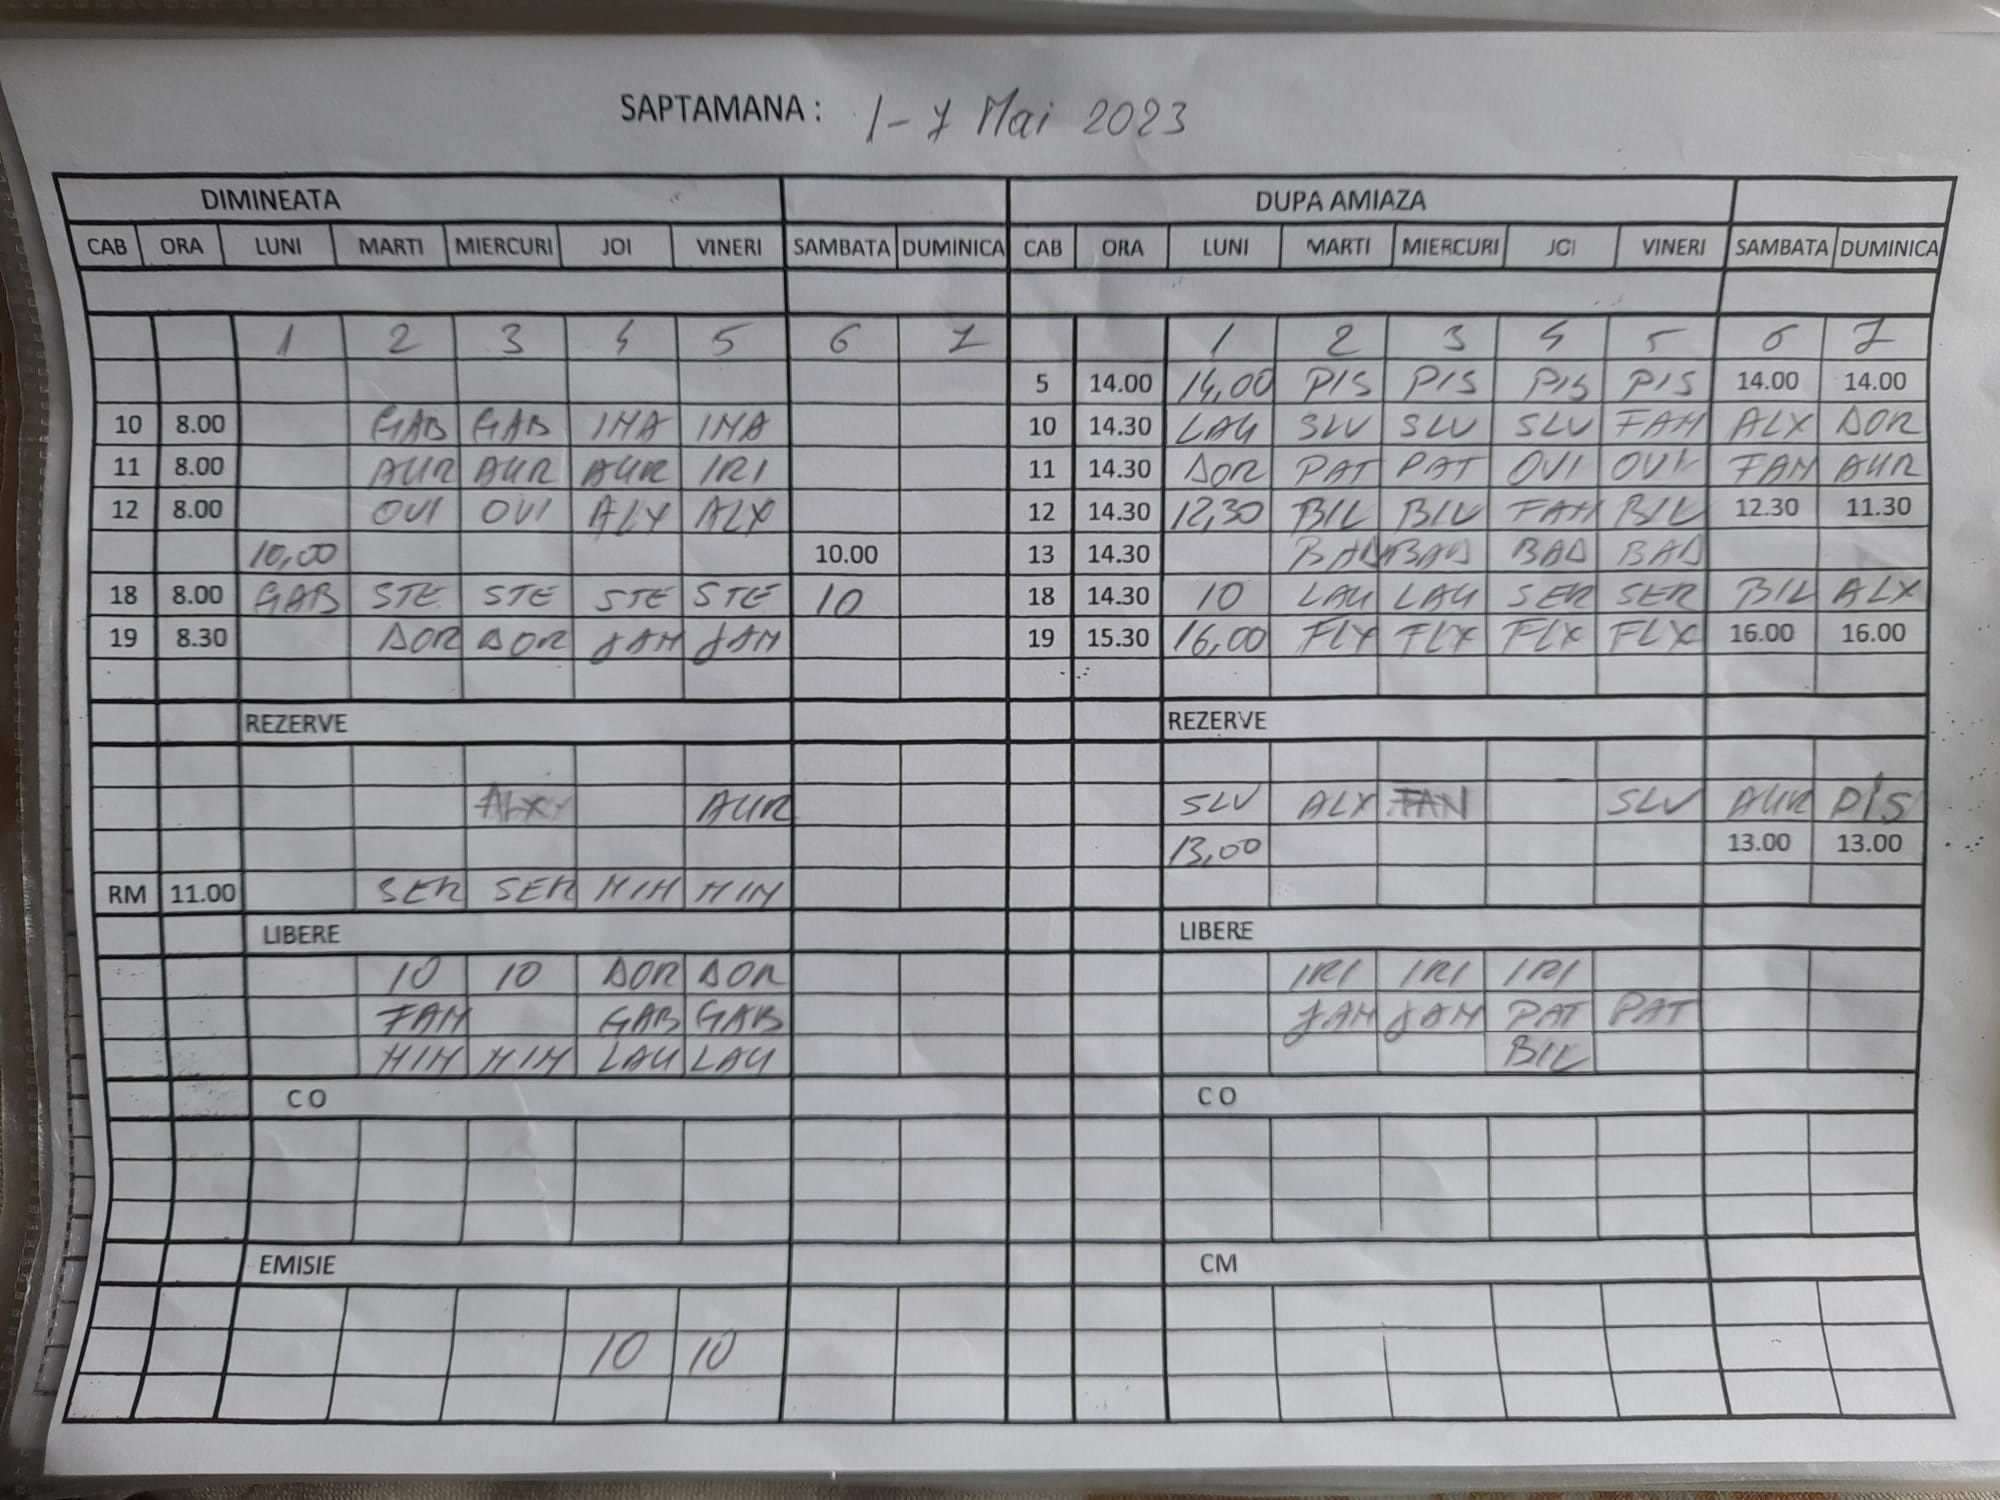 SAPTAMANA : 1-7 Mai 2023
DIMINEATA DUPA AMIAZA
CAB ORA LUNI MARTI MIERCURI JOI VINERI SAMBATA DUMINICA CAB ORA LUNI MARTI MIERCURI JOI VINERI SAMBATA DUMINICA
1 2 3 4 5 6 7 1 2 3 4 5 6 7
5 14.00 14,00 PIS PIS PIS PIS 14.00 14.00
10 8.00 GAB GAB INA INA 10 14.30 LAU SLV SLV SLV FAN ALX DOR
11 8.00 AUR AUR AUR IRI 11 14.30 DOR PAT PAT OVI OVI FAN AUR
12 8.00 OVI OVI ALX ALX 12 14.30 12,30 BIL BIL FAN BIL 12.30 11.30
10,00 10.00 13 14.30 BAD BAD BAD BAD
18 8.00 GAB STE STE STE STE 10 18 14.30 10 LAU LAU SER SER BIL ALX
19 8.30 DOR DOR JAN JAN 19 15.30 16,00 FLX FLX FLX FLX 16.00 16.00
REZERVE REZERVE
ALX AUR SLV ALX FAN SLV AUR PIS
13,00 13.00 13.00
RM 11.00 SER SER MIH MIH
LIBERE LIBERE
IO IO DOR DOR IRI IRI IRI
FAN GAB GAB JAN JAN PAT PAT
MIH MIH LAU LAU BIL
C O C O
EMISIE CM
IO IO